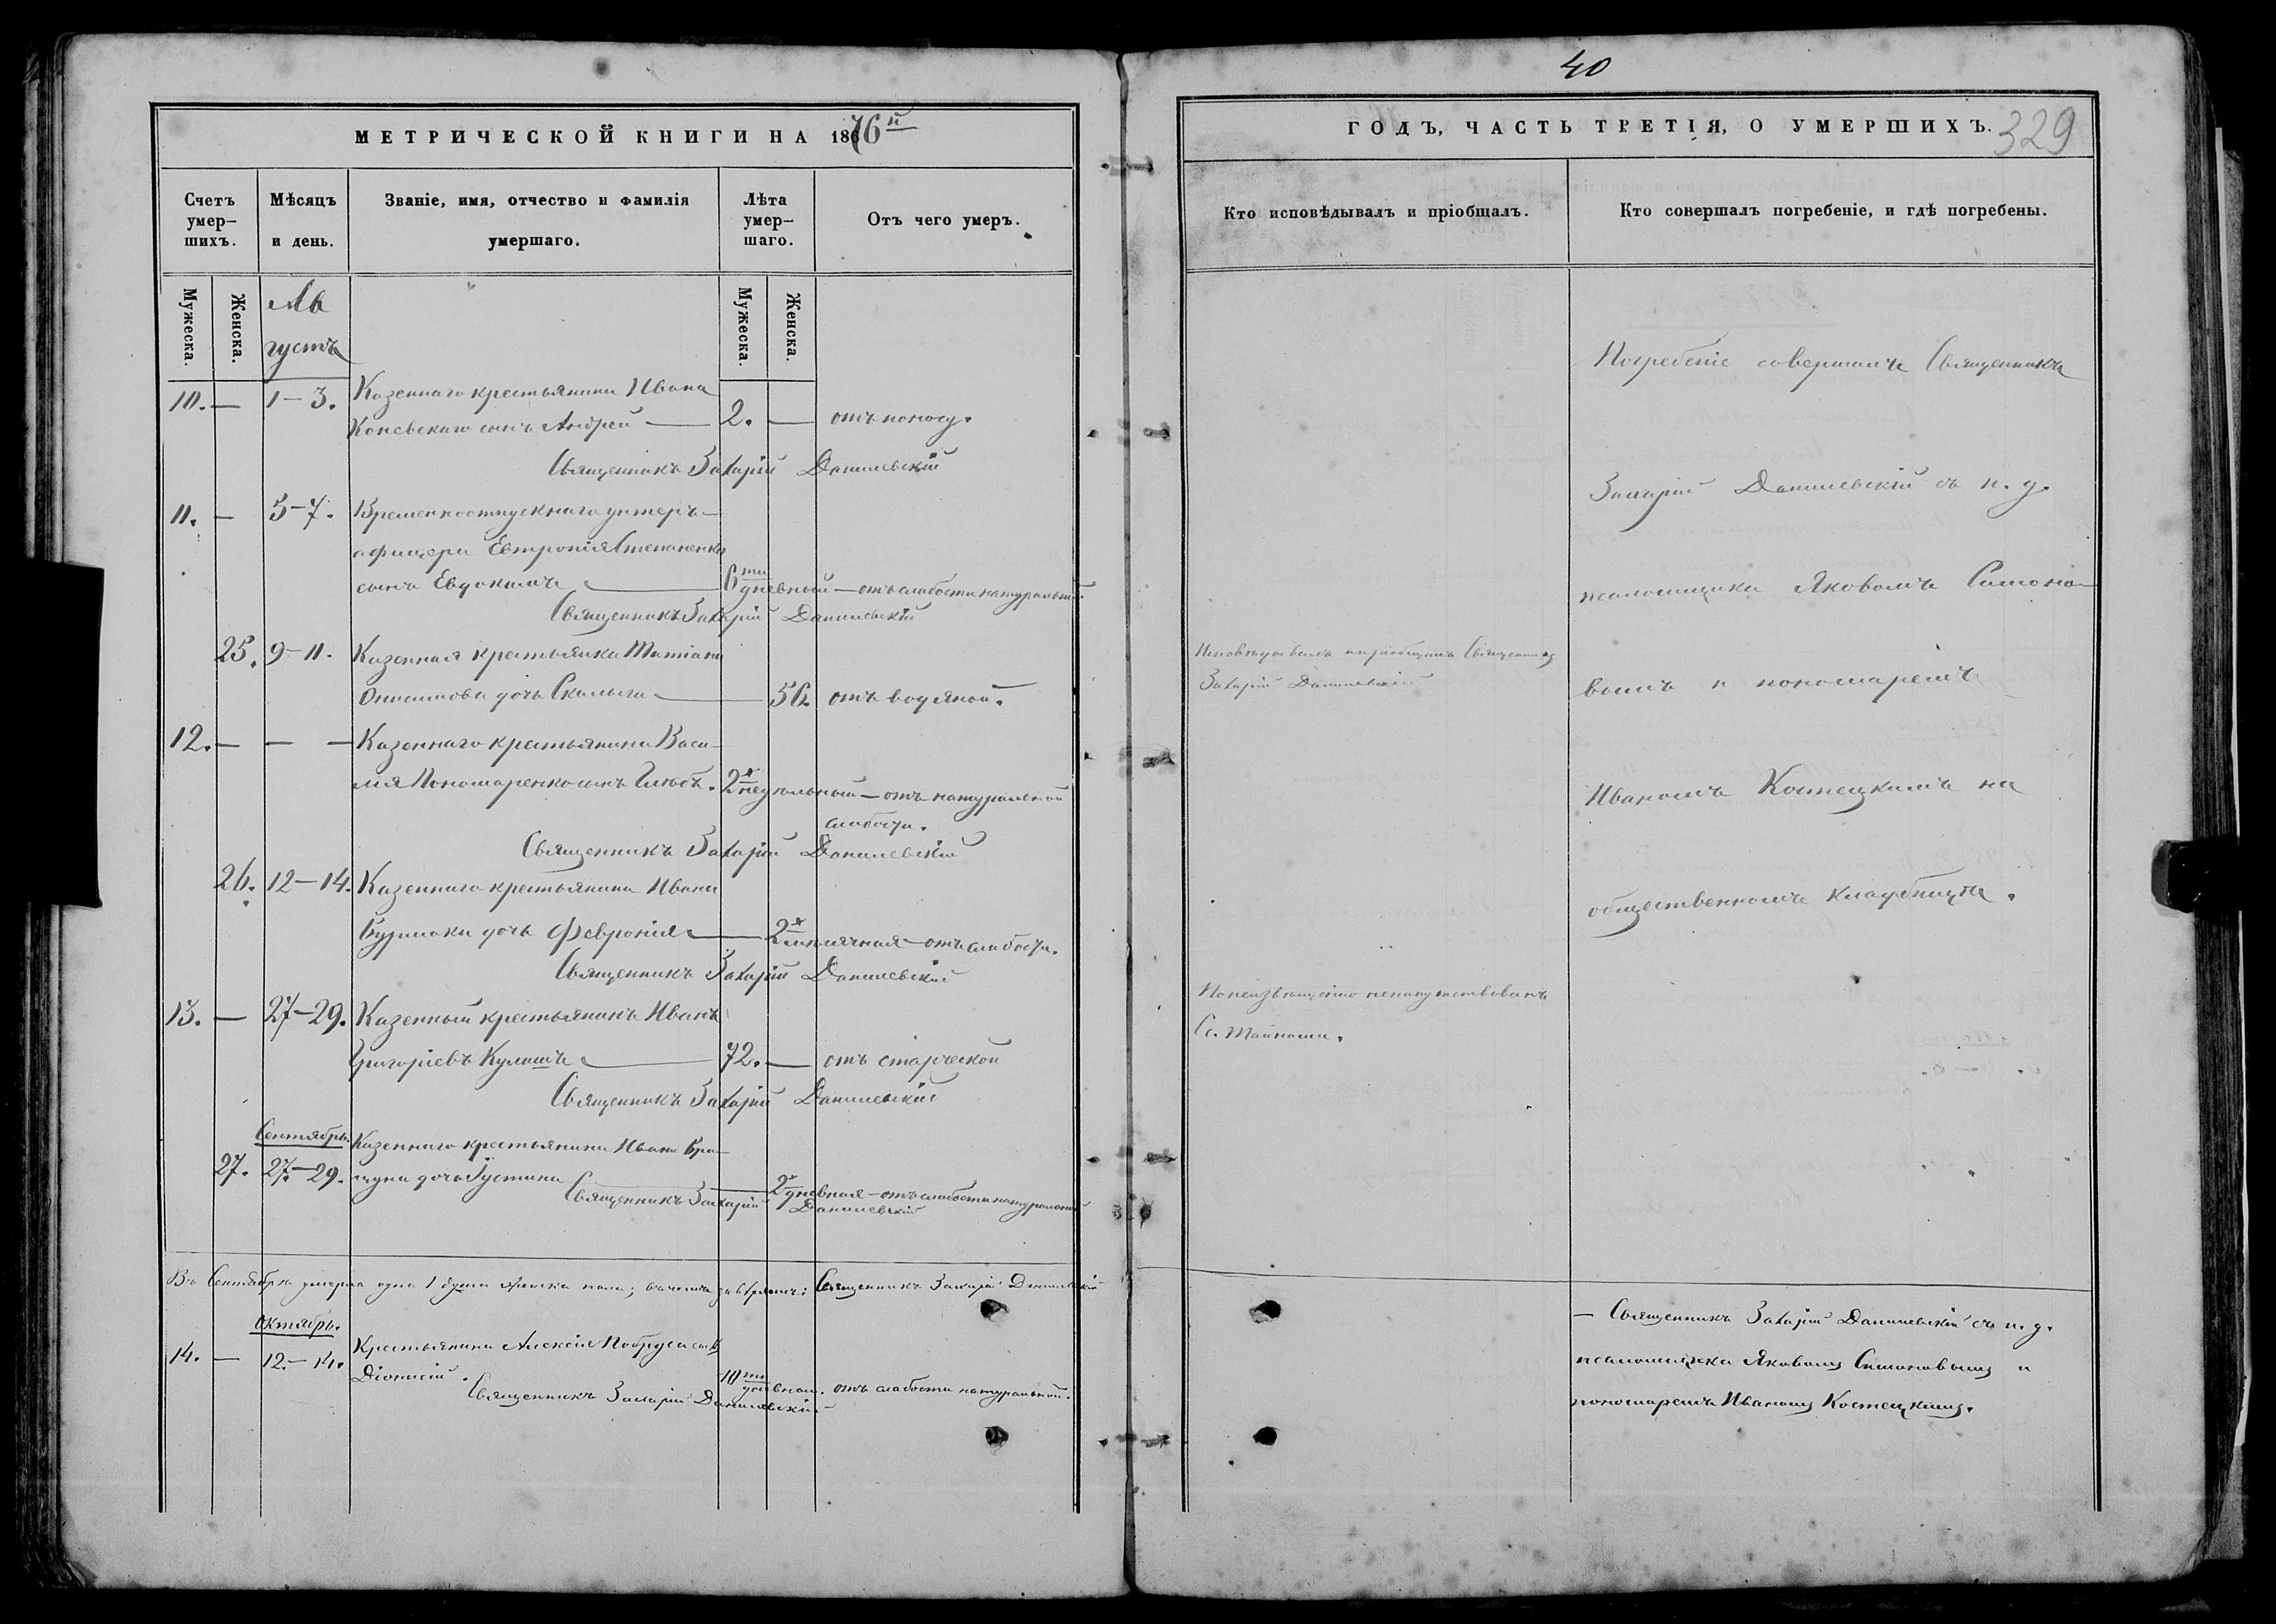 40
МЕТРИЧЕСКОЙ КНИГИ НА 1876й
Счетъ умер-шихъ.
Мѣсяцъ и день.
Званіе, имя, отчество и фамилія умершаго.
Лѣта умер-шаго.
Отъ чего умеръ.
Мужеска.
Женска.
Ав
густъ
Мужеска.
Женска.
10. — 1–3. Казеннаго крестьянина Ивана
Коневскаго сынъ Андрей — 2. — отъ поносу.
Священникъ Захарій Данилевскій
11. — 5–7. Временноотпускнаго унтеръ-
афицера Евтропія Степаненка
сынъ Евдокимъ — 6ти дневный — отъ слабости натуральной
Священникъ Захарій Данилевскій
25. 9–11. Казенная крестьянка Татіана
Онисимова дочь Скалыга — 56. отъ водяной.
12. — — — Казеннаго крестьянина Васи-
лія Пономаренко сынъ Глѣбъ. 2х недѣльный — отъ натуральной
слабости.
Священникъ Захарій Данилевскій
26. 12–14. Казеннаго крестьянина Ивана
Бурлаки дочь Февронія — 2х мѣсячная — отъ слабости.
Священникъ Захарій Данилевскій
13. — 27–29. Казенный крестьянинъ Иванъ
Григоріевъ Кулишъ — 72. — отъ старческой
Священникъ Захарій Данилевскій
Сентябрь. Казеннаго крестьянина Ивана
27. 27–29. дочь Іустина — 2х дневная — отъ слабости натуральной
Священникъ Захарій Данилевскій
Въ Сентябрѣ умерла одна 1 душа женска пола; въ чемъ Священникъ Захарій Данилевскій
Октябрь.
14. — 12.–14. Крестьянина Алексія сынъ
Діонисій. 10ти дневной. отъ слабости натуральной.
Священникъ Захарій Данилевскій
ГОДЪ, ЧАСТЬ ТРЕТІЯ, О УМЕРШИХЪ.
329
Кто исповѣдывалъ и пріобщалъ.
Кто совершалъ погребеніе, и гдѣ погребены.
Исповѣдывалъ и пріобщалъ Священникъ
Захарій Данилевскій
По неизвѣщенію ненапутствованъ
Св. Тайнами.
Погребеніе совершалъ Священникъ
Захарій Данилевскій съ и. д.
псаломщика Яковомъ Симоно-
вымъ и пономаремъ
Иваномъ Костецкимъ на
общественномъ кладбищѣ.
— Священникъ Захарій Данилевскій съ и. д.
псаломщика Яковомъ Симоновымъ и
пономаремъ Иваномъ Костецкимъ.